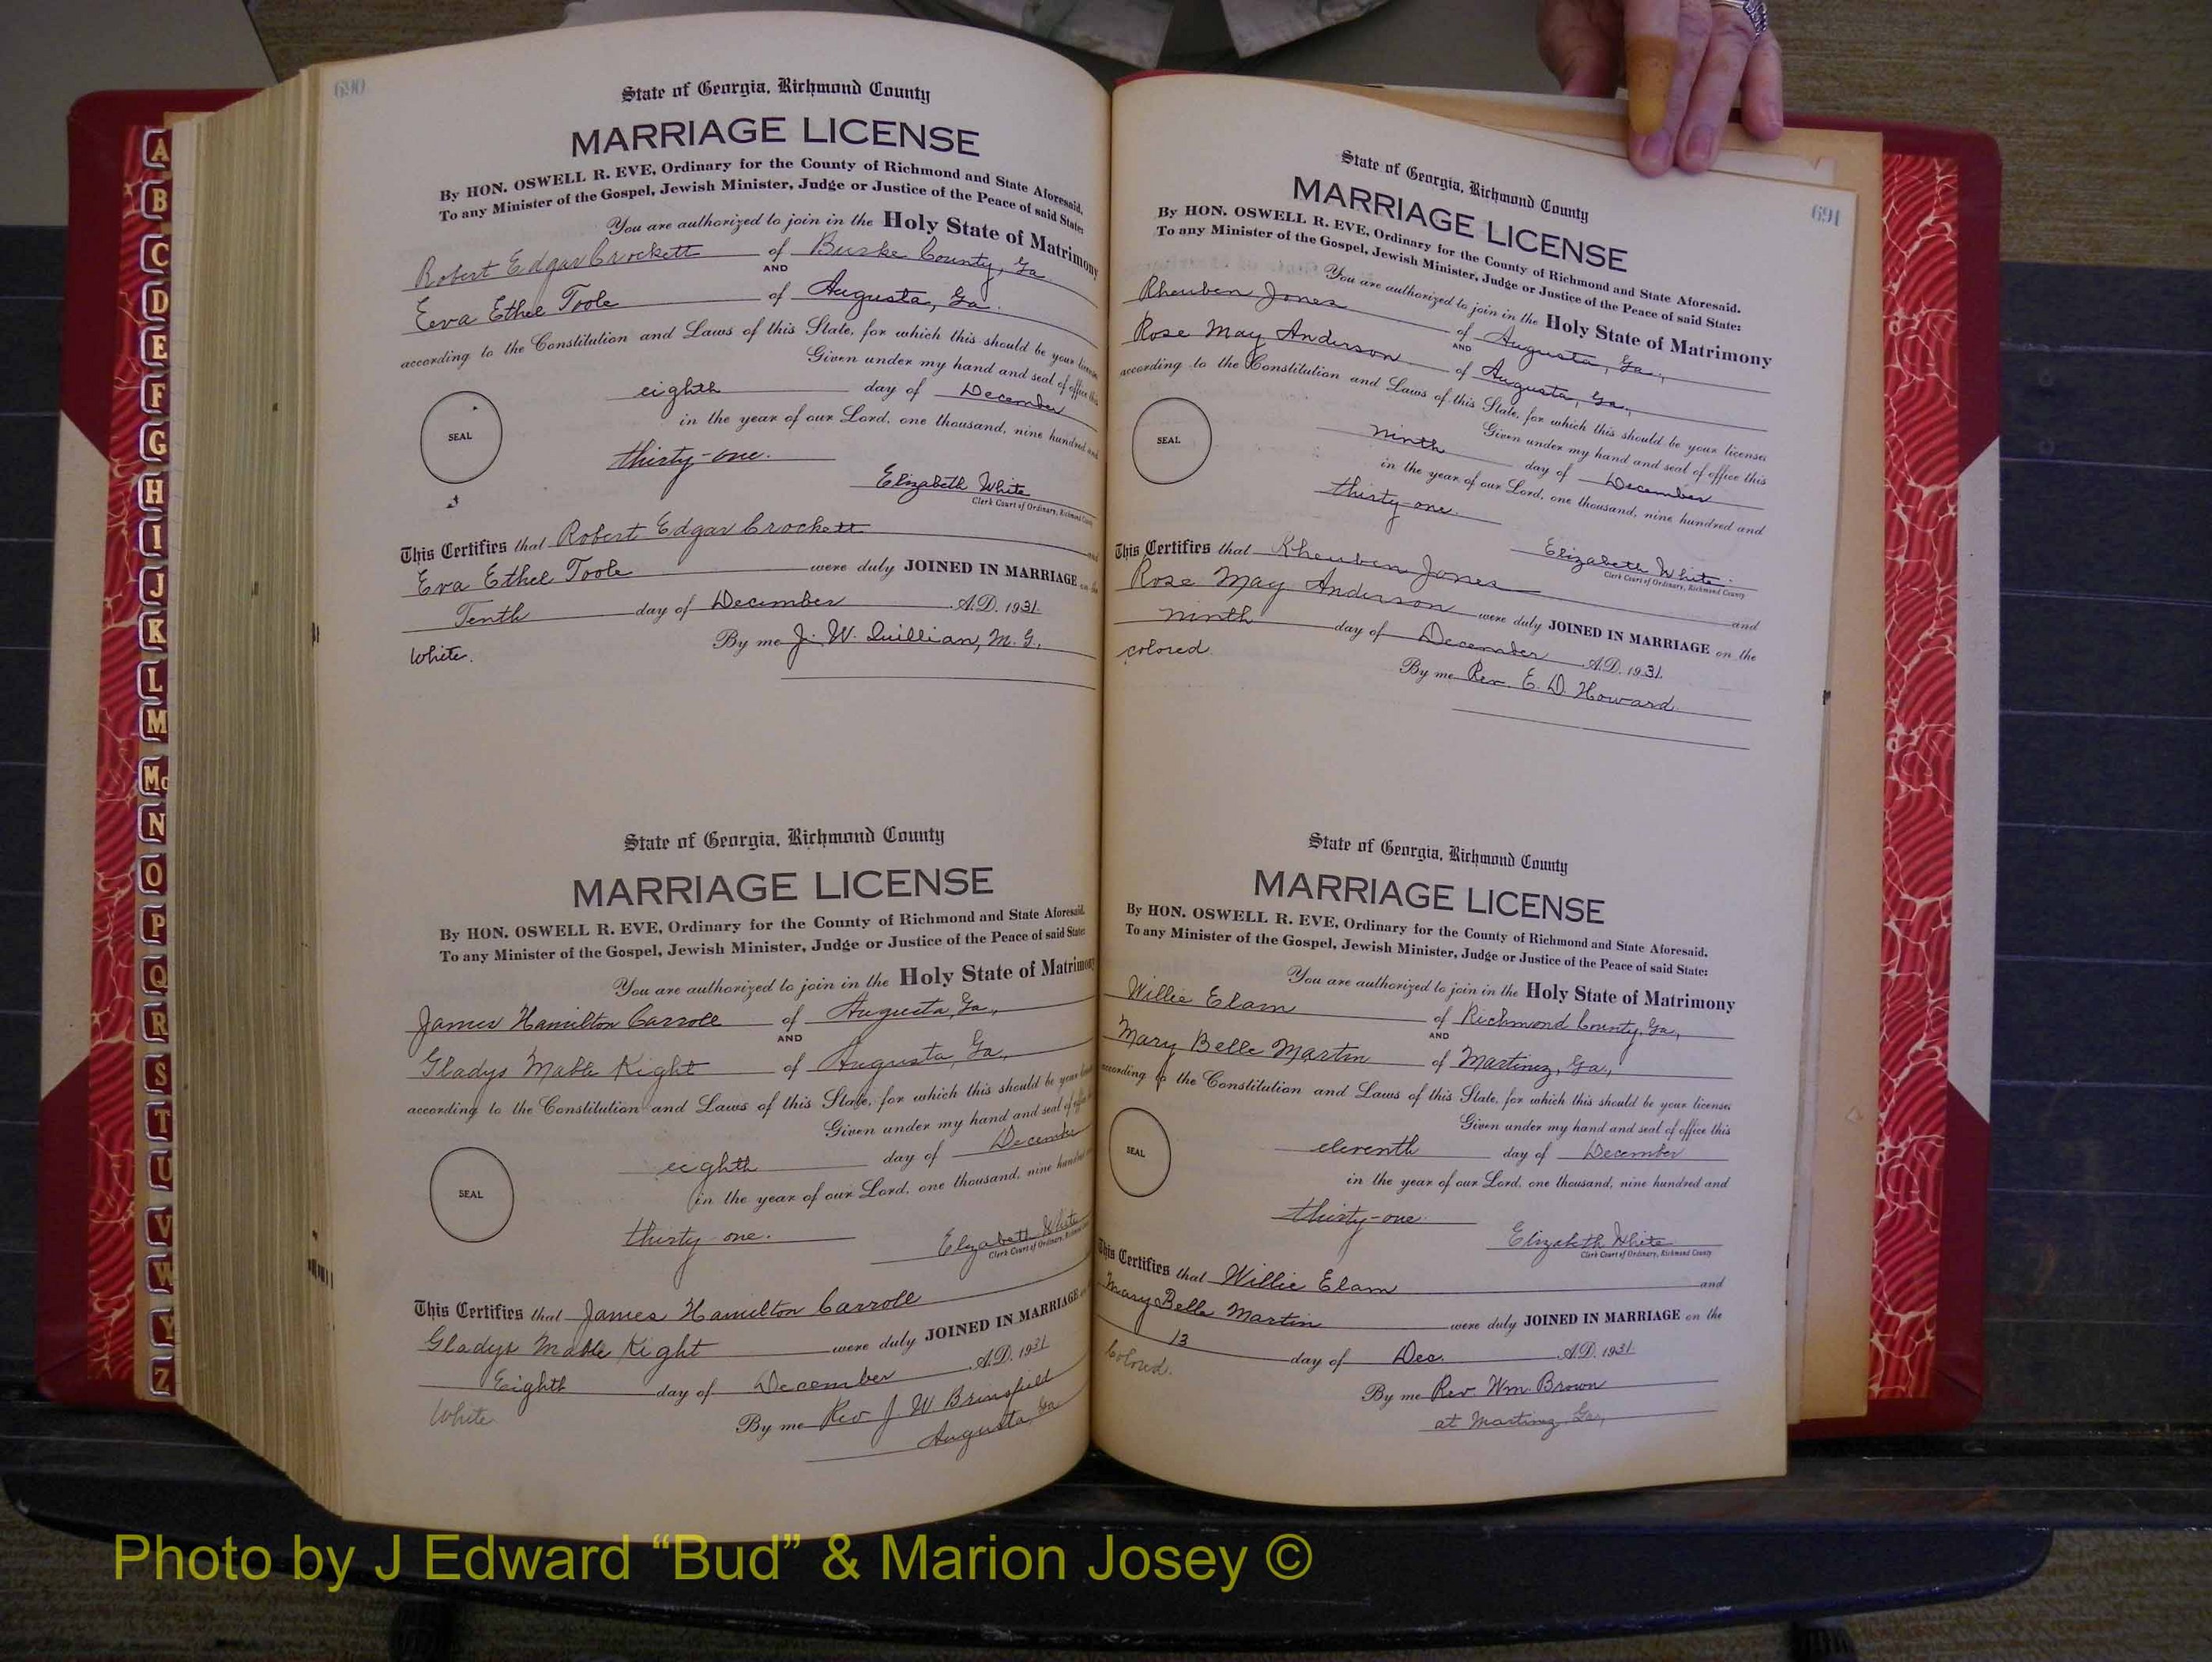 A
B
C
D
E
F
G
H
I
J
K
L
M
Mc
N
O
P
Q
R
S
T
U
V
W
Y
Z
690
State of Georgia, Richmond County
MARRIAGE LICENSE
By HON. OSWELL R. EVE, Ordinary for the County of Richmond and State Aforesaid.
To any Minister of the Gospel, Jewish Minister, Judge or Justice of the Peace of said State:
You are authorized to join in the Holy State of Matrimony
Robert Edgar Crockett of Burke County, Ga
AND
Eva Ethel Toole of Augusta, Ga.
according to the Constitution and Laws of this State, for which this should be your license
Given under my hand and seal of office this
eighth day of December
in the year of our Lord, one thousand, nine hundred and
SEAL
thirty-one.
Elizabeth White
Clerk Court of Ordinary, Richmond County
This Certifies that Robert Edgar Crockett and
Eva Ethel Toole were duly JOINED IN MARRIAGE on the
Tenth day of December A.D. 1931.
White. By me J. W. Quillian, M. G.
State of Georgia, Richmond County
MARRIAGE LICENSE
By HON. OSWELL R. EVE, Ordinary for the County of Richmond and State Aforesaid.
To any Minister of the Gospel, Jewish Minister, Judge or Justice of the Peace of said State:
You are authorized to join in the Holy State of Matrimony
James Hamilton Carroll of Augusta, Ga.,
AND
Gladys Mable Kight of Augusta, Ga.,
according to the Constitution and Laws of this State, for which this should be your
Given under my hand and seal of office
eighth day of December
in the year of our Lord, one thousand, nine hundred
SEAL
thirty-one.
Elizabeth White
Clerk Court of Ordinary, Richmond
This Certifies that James Hamilton Carroll
Gladys Mable Kight were duly JOINED IN MARRIAGE
Eighth day of December A.D. 1931.
White By me Rev J. W Brinsfield
Augusta, Ga
691
State of Georgia, Richmond County
MARRIAGE LICENSE
By HON. OSWELL R. EVE, Ordinary for the County of Richmond and State Aforesaid.
To any Minister of the Gospel, Jewish Minister, Judge or Justice of the Peace of said State:
You are authorized to join in the Holy State of Matrimony
Rheuben Jones of Augusta, Ga.,
AND
Rose May Anderson of Augusta, Ga.,
according to the Constitution and Laws of this State, for which this should be your license
Given under my hand and seal of office this
SEAL
ninth day of December
in the year of our Lord, one thousand, nine hundred and
thirty-one.
Elizabeth White.
Clerk Court of Ordinary, Richmond County
This Certifies that Rheuben Jones and
Rose May Anderson were duly JOINED IN MARRIAGE on the
ninth day of December A.D. 1931.
colored. By me Rev. E. D. Howard
State of Georgia, Richmond County
MARRIAGE LICENSE
By HON. OSWELL R. EVE, Ordinary for the County of Richmond and State Aforesaid.
To any Minister of the Gospel, Jewish Minister, Judge or Justice of the Peace of said State:
You are authorized to join in the Holy State of Matrimony
Willie Elam of Richmond County, Ga.,
AND
Mary Belle Martin of Martinez, Ga.,
according to the Constitution and Laws of this State, for which this should be your license
Given under my hand and seal of office this
SEAL
eleventh day of December
in the year of our Lord, one thousand, nine hundred and
thirty-one.
Elizabeth White
Clerk Court of Ordinary, Richmond County
This Certifies that Willie Elam and
Mary Belle Martin were duly JOINED IN MARRIAGE on the
13 day of Dec. A.D. 1931.
Colored. By me Rev. Wm. Brown
at Martinez, Ga.,
Photo by J Edward “Bud” & Marion Josey ©